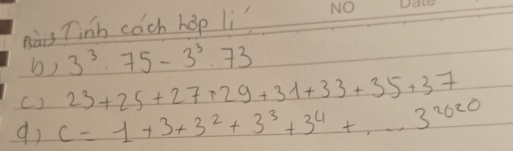 NO Date
Bài 3 Tính cách hợp lí
b) 3³ . 75 - 3³ . 73
c) 23 + 25 + 27 + 29 + 31 + 33 + 35 + 37
d) C = 1 + 3 + 3² + 3³ + 3⁴ + ... 3²⁰²⁰